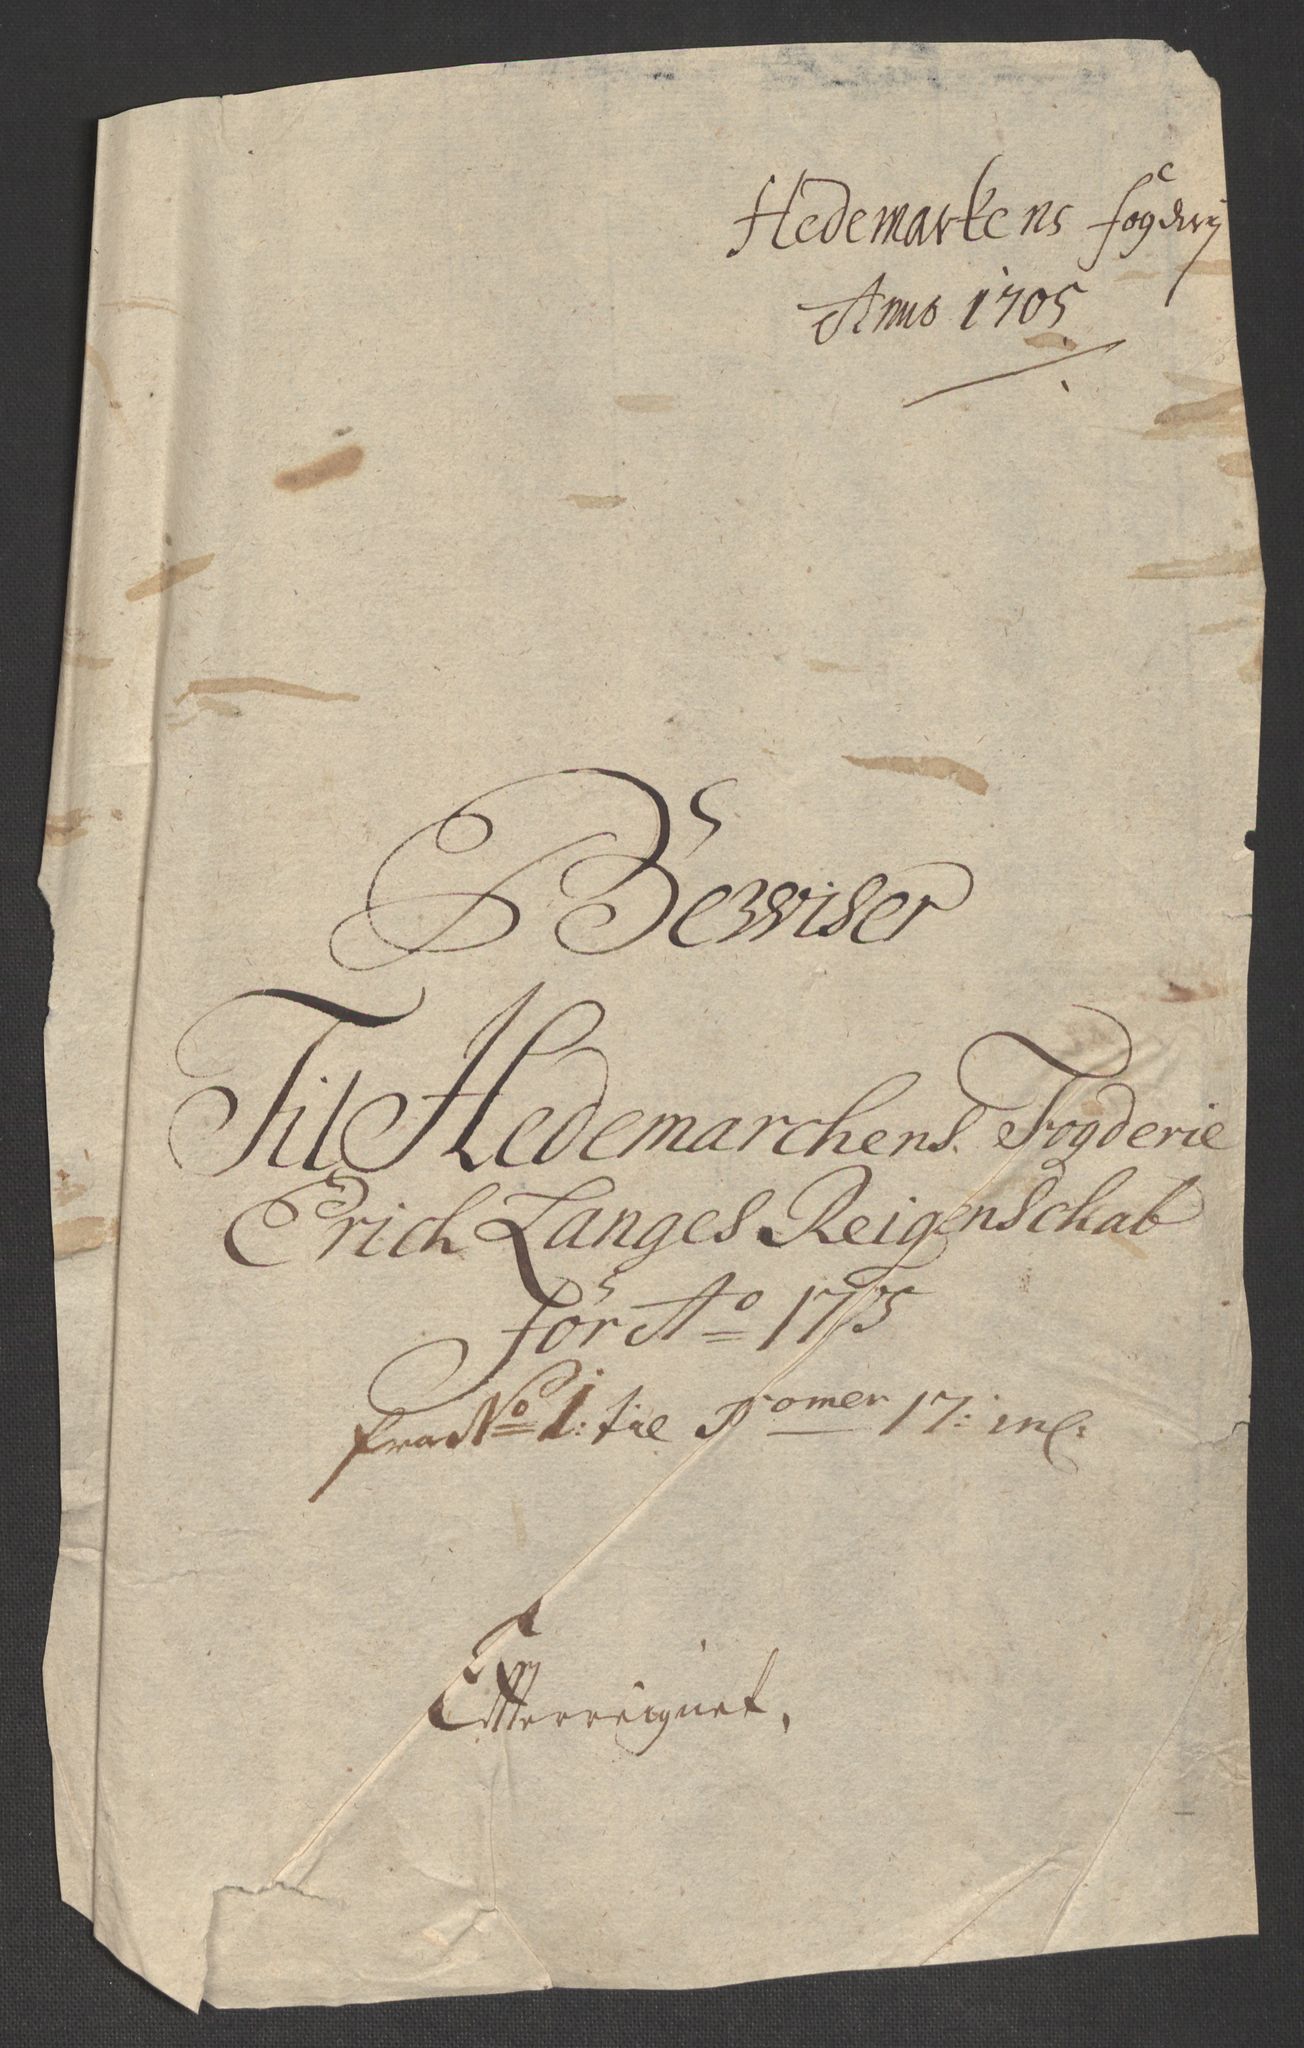 Hedemarkens fogderij
Anno 1705
Bewiser
Til Hedemarchens Fogderie
Erich Langes Reigenschab
for Ao 1705
fra No 1: til Nomer 17: incl:
Efterreignet,